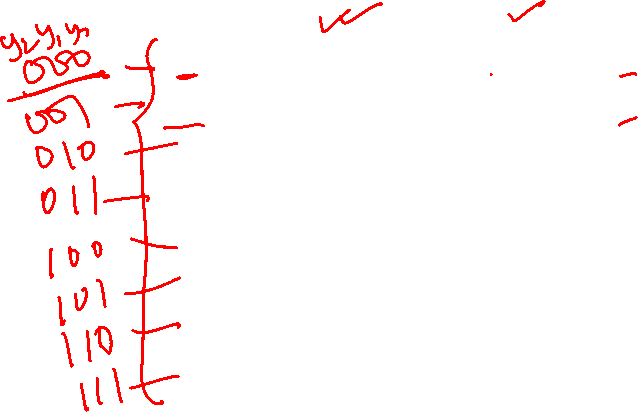 y₂ y₁ y₀
000
001
010
011
100
101
110
111